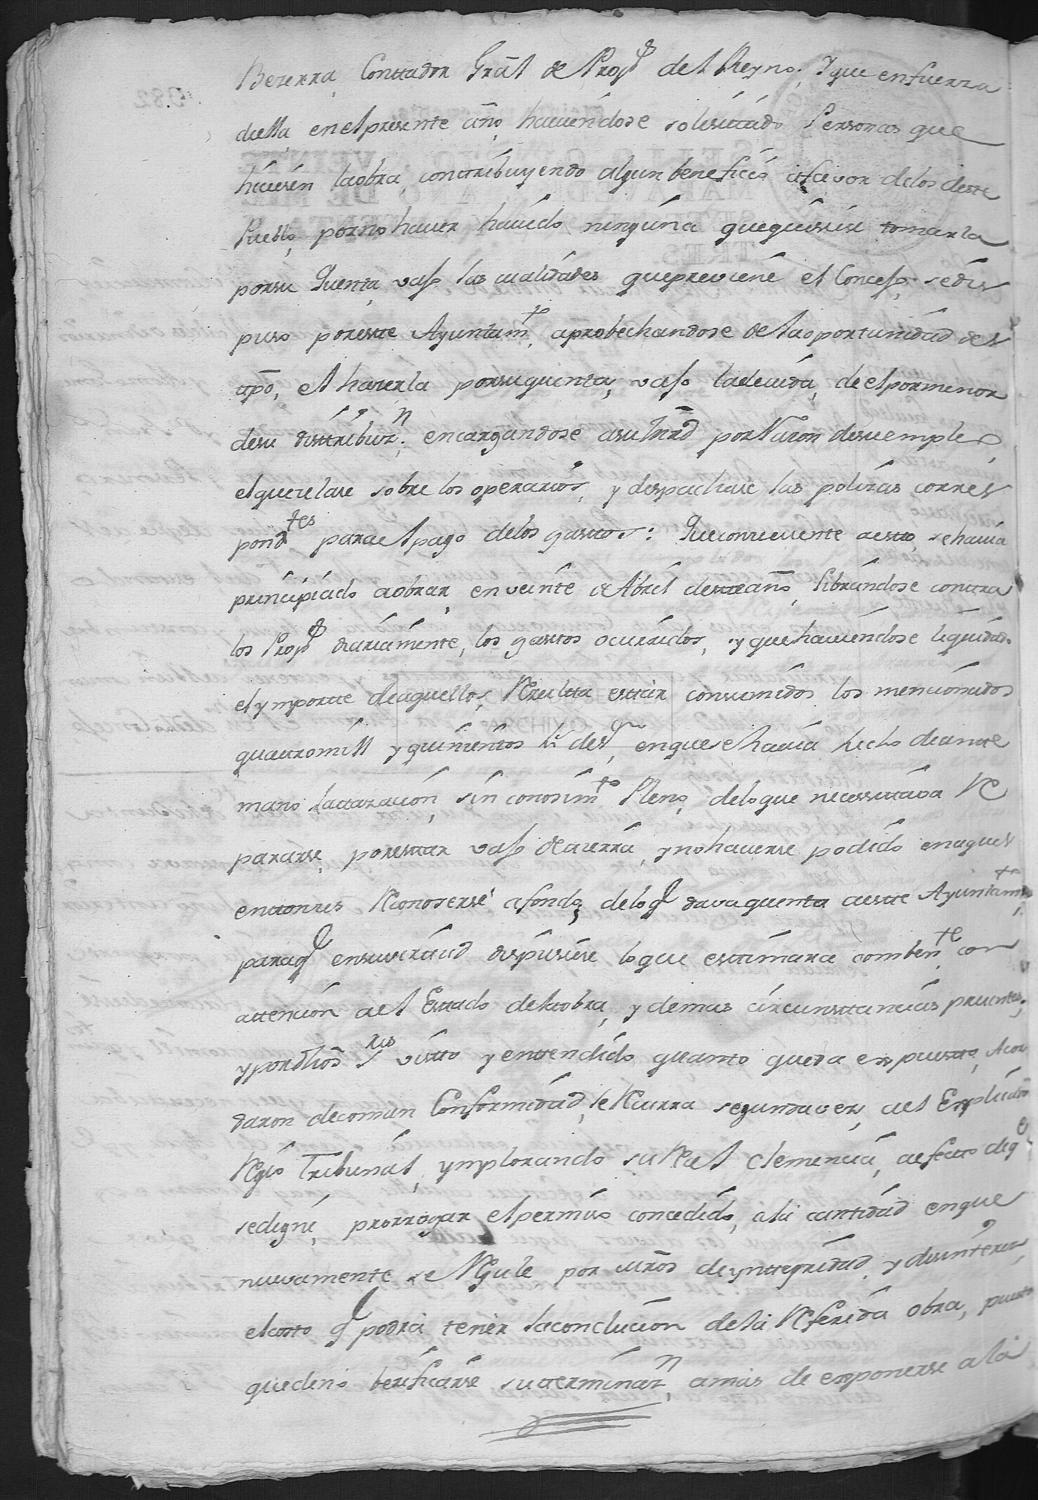 Bezerra, Contador Grãl de Prop.s del Reyno; Yque enfuerza
de ella, en el presente año, haviendose solicitado Personas que
hicieren la obra, contribuyendo algun beneficio afavor de los de este
Pueblo, por no haver havido ninguna que quisiere tomarla
por su quenta, vajo las cualidades que previene el Consejo, se dis
puso por este Ayuntam.to aprobechandose de la oportunidad del
tpõ, el hazerla por su quenta, vajo la devida, de el pormenor
de su distribuz.n encargandose a su Mrd por Razon de su empleo
el que zelase sobre los operarios, y despachase las polizas corres
pond.tes para el pago de los gastos: Que consequente a esto, se havia
principiado a obrar en veinte de Abril de este año, librandose contra
los Prop.s diariamente, los gastos ocurridos, y que haviendose liquidado
el ymporte de aquellos, Resulta estar consumidos los mencionados
quatro mill y quinientos r.s de v.n en que se havia hecho de ante
mano la tazacion, sin conosim.to Pleno, de lo que necessitava Re
pararse, por estar vajo de tierra, y no haverse podido en aquel
entonzes Reconoserse afondo; de lo q dava quenta a este Ayuntam.to
para q en su virtud dispusiese lo que estimara comben.te con
attencion a el Estado de la obra, y demas circunstancias precentes;
y por dhõs S.res visto y entendido quanto queda expuesto, Acor
daron de comun Conformidad, se Recurra segunda vez, a el Expresado
Regio Tribunal, ymplorando su Real clemencia, a efecto de q.e
se digne, prorrogar el permiso concedido, a la cantidad en que
nuevamente se Regule por peritos de yntegridad, y desinterez,
el costo q podra tener la conclucion de la Referida obra, puesto
que de no berificarse su terminaz.n amas de exponerse a la